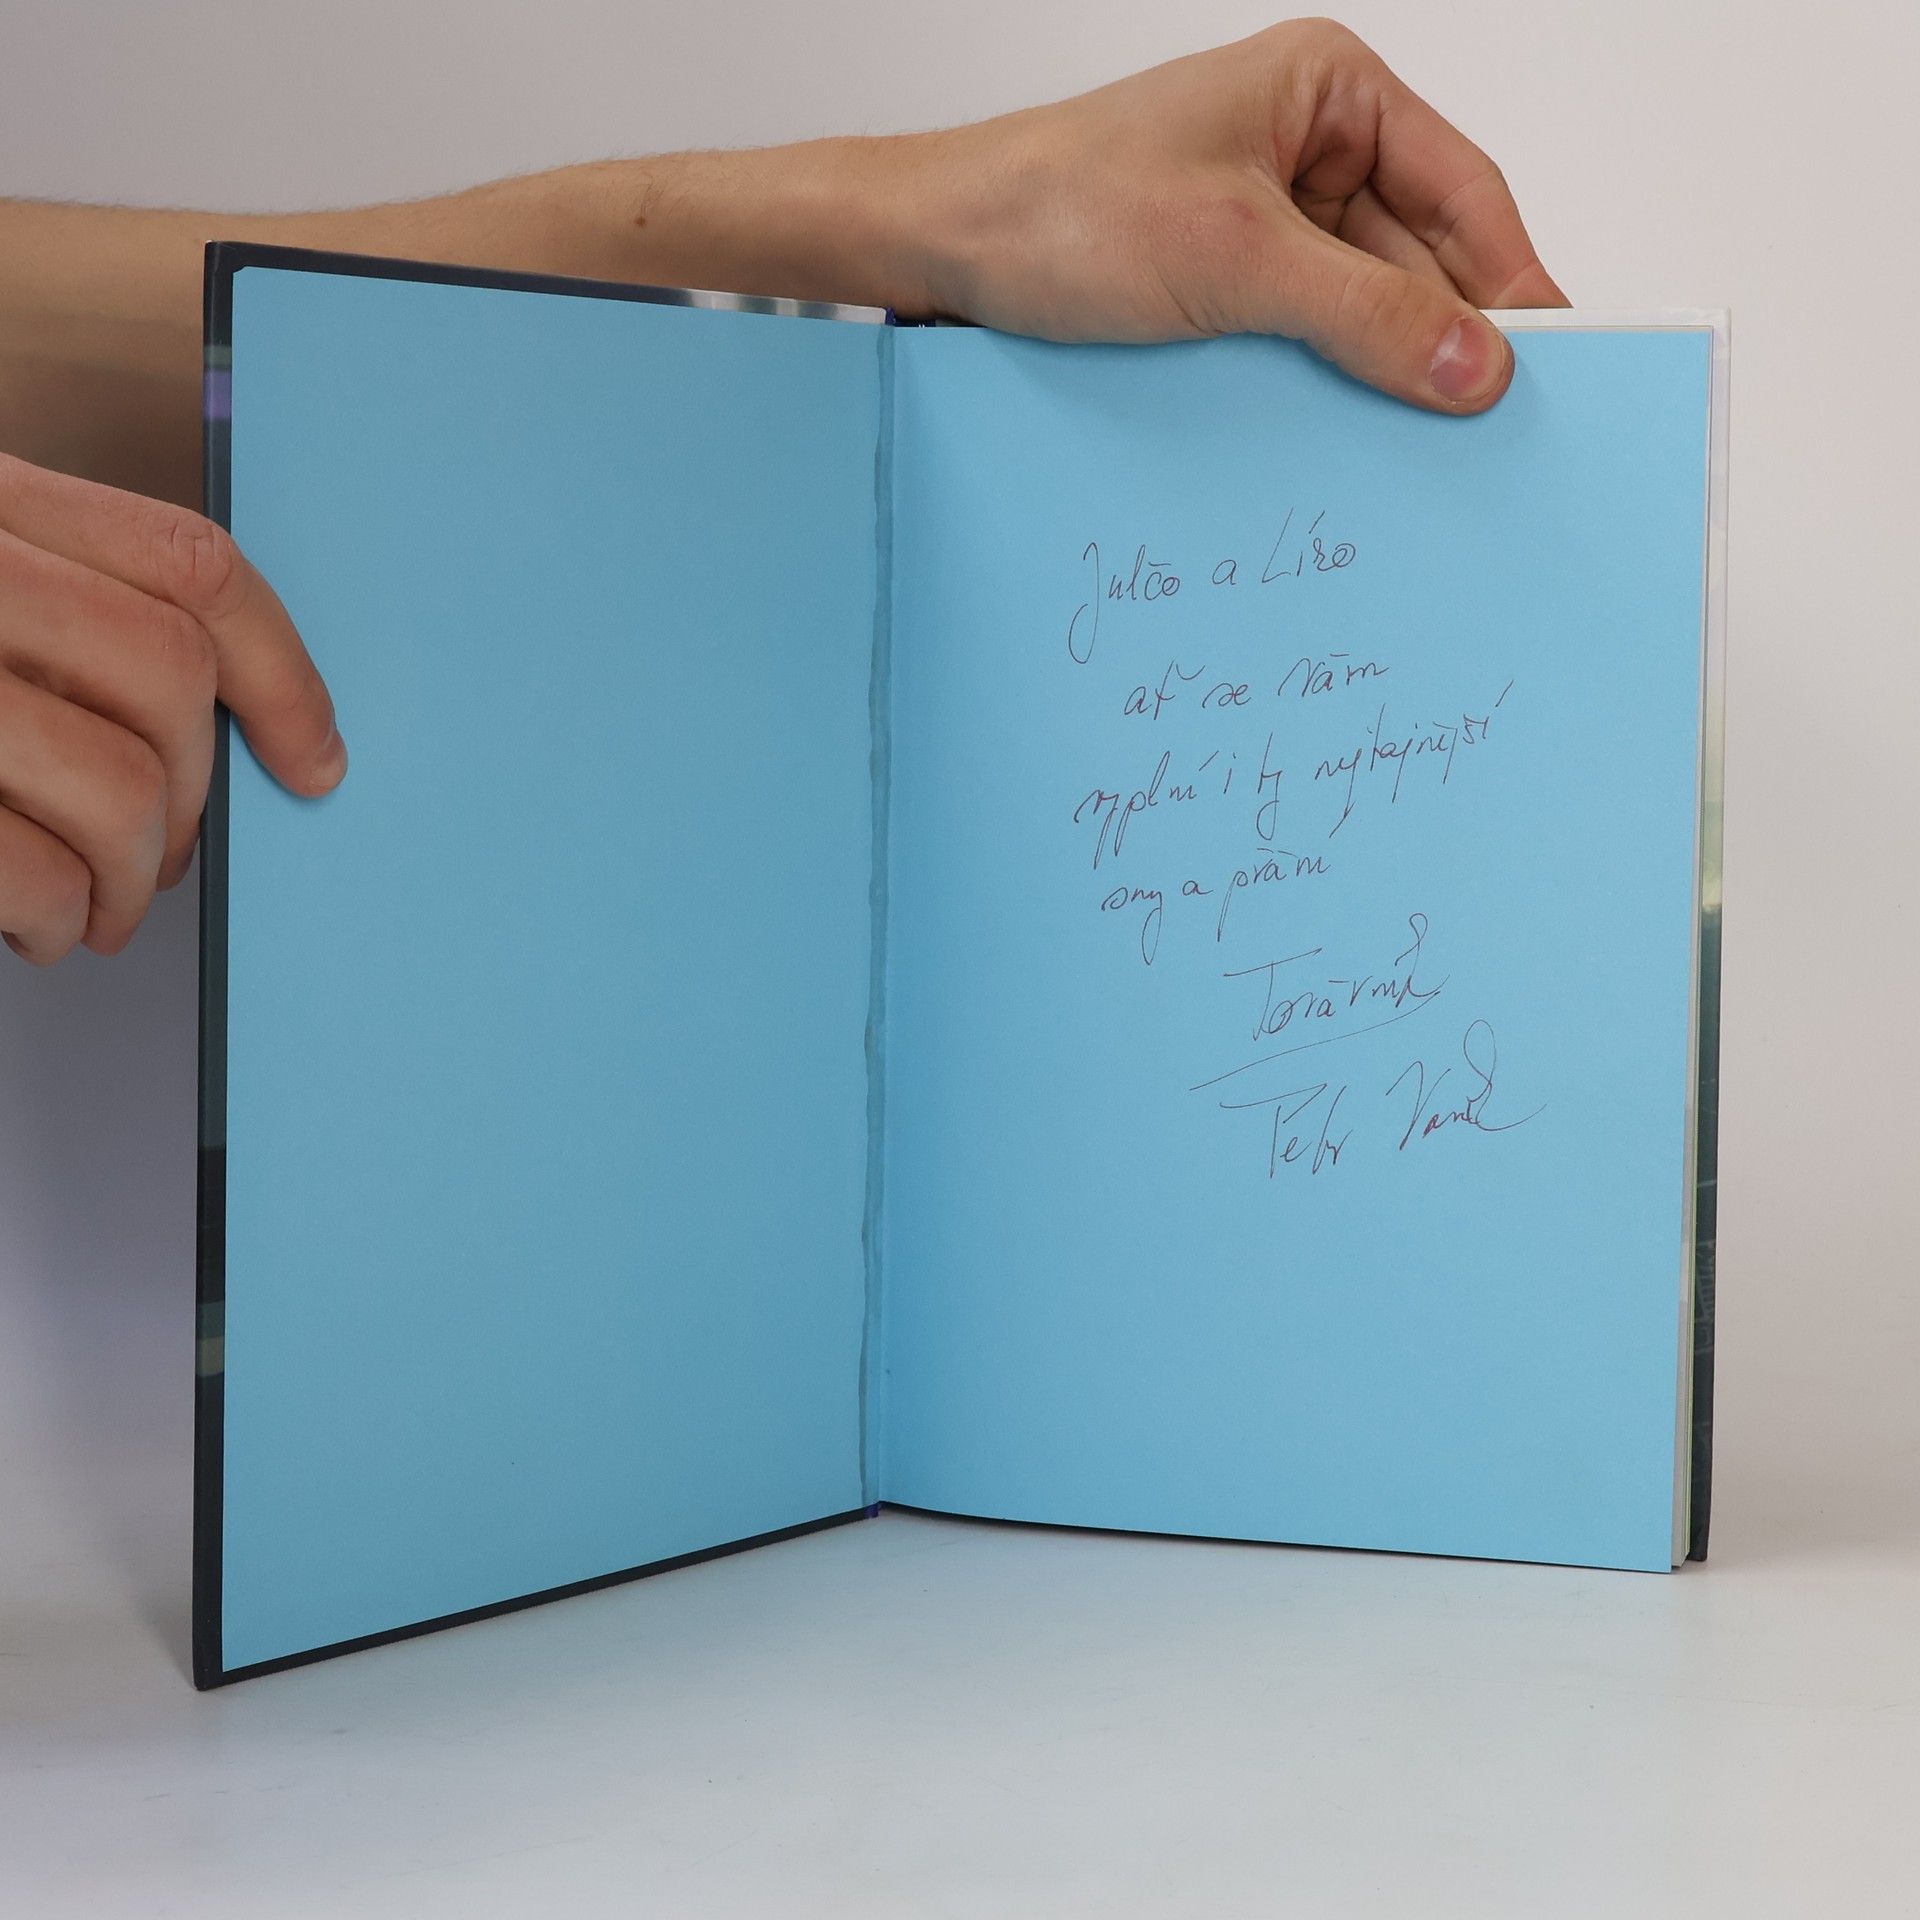 Julčo a Líro
ať se Vám
vyplní i ty nejtajnější
sny a přání
Továrník
Petr Vaněk